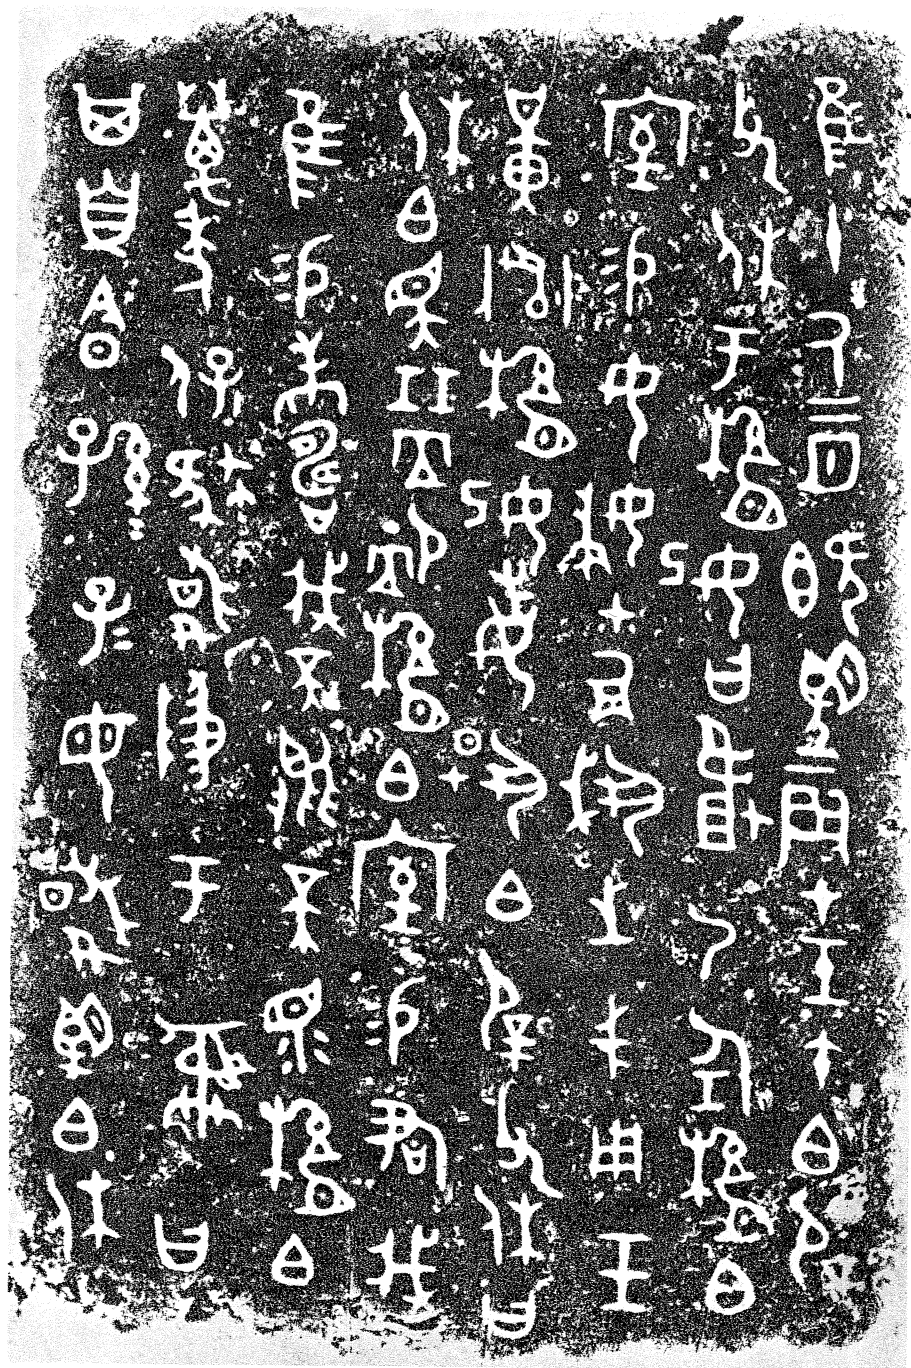 隹十又二月既朢辰才壬午白屖
父休于縣妃曰𠭯乃任縣白
室易女婦爵之弋周玉
黃縣妃奉揚白屖父休曰
休白恤縣白室易君我
隹易壽我不能不眔縣白
萬年保肆敢于彝曰
其自今日孫孫子子毋敢朢白休